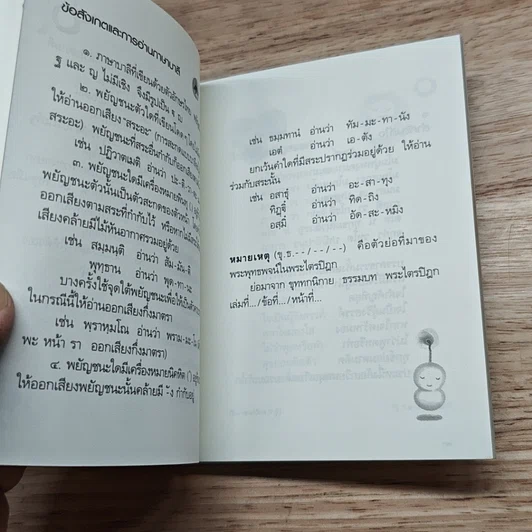 ข้อสังเกตและการอ่านภาษาบาลี
๑. ภาษาบาลีที่เขียนด้วยตัวอักษรไทย
ฐ และ ญ ไม่มีเชิง จึงมีรูปเป็น
๒. พยัญชนะตัวใดที่เขียนโดด ๆ
ให้อ่านออกเสียง "สระอะ"
สระอะ) พยัญชนะที่สระอื่นกำกับก็ออกเสียง
เช่น ปฏิวาตเมติ อ่านว่า
๓. พยัญชนะใดมีเครื่องหมายพินทุ (.)
พยัญชนะตัวนั้นเป็นตัวสะกดของตัวหน้า
ออกเสียงตามสระที่กำกับไว้ หรือหาก
เสียงคล้ายมีไม้หันอากาศรวมอยู่ด้วย
เช่น สมฺมนฺติ อ่านว่า สัม-มัน-ติ
พุทฺธาน อ่านว่า พุด-ทา-นะ
บางครั้งใช้จุดใต้พยัญชนะเพื่อให้เป็นตัว
ในกรณีนี้ให้อ่านออกเสียงกึ่งมาตรา
เช่น พฺราหฺมโณ อ่านว่า พราม-มะ-โน
พะ หน้า รา ออกเสียงกึ่งมาตรา
๔. พยัญชนะใดมีเครื่องหมายนิคหิต (ํ) อยู่
ให้ออกเสียงพยัญชนะนั้นคล้ายมี -ัง กำกับอยู่
เช่น ธมฺมทานํ อ่านว่า ทัม-มะ-ทา-นัง
เอตํ อ่านว่า เอ-ตัง
ยกเว้นคำใดที่มีสระปรากฏร่วมอยู่ด้วย ให้อ่าน
ร่วมกับสระนั้น
เช่น อสาธุํ อ่านว่า อะ-สา-ทุง
ทิฏฺฐึ อ่านว่า ทิด-ถิง
อสฺมึ อ่านว่า อัด-สะ-หมิง
หมายเหตุ (ขุ.ธ.--/--/--) คือตัวย่อที่มาของ
พระพุทธพจน์ในพระไตรปิฎก
ย่อมาจาก ขุททกนิกาย ธรรมบท พระไตรปิฎก
เล่มที่.../ข้อที่.../หน้าที่...